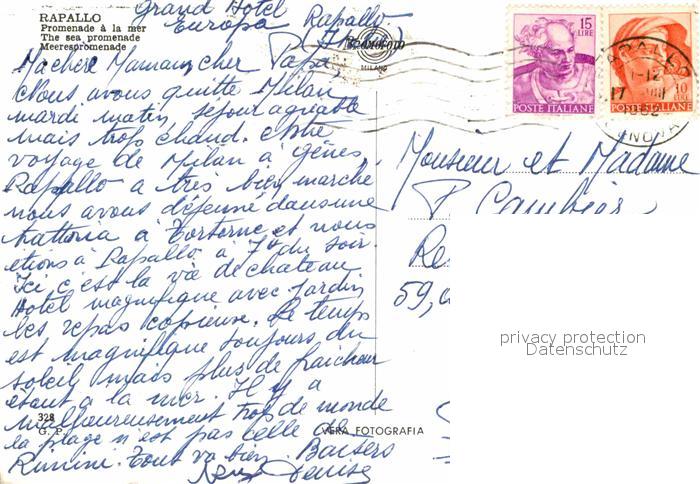 RAPALLO
Promenade à la mer
The sea promenade
Meerespromenade
Grand Hotel
Europa Rapallo
MILANO
15
LIRE
POSTE ITALIANE
10
LIRE
POSTE ITALIANE
RAPALLO
Ma chère Maman, cher Papa
Nous avons quitté Milan
mardi matin, séjour agréable
mais trop chaud. Notre
voyage de Milan à Gênes
Rapallo a très bien marché
nous avons déjeuné dans une
trattoria à Tortone et nous
étions à Rapallo à 7h du soir.
Ici c'est la vie de château.
Hotel magnifique avec jardin
les repas copieuse. Le temps
est magnifique toujours du
soleil, mais plus de fraicheur
étant à la mer. Il y a
malheureusement trop de monde
la plage n'est pas celle de
Rimini. Tout va bien. Baisers
Denise
Monsieur et Madame
P. Cambier
Re
59,
328
G. P.
VERA FOTOGRAFIA
privacy protection
Datenschutz